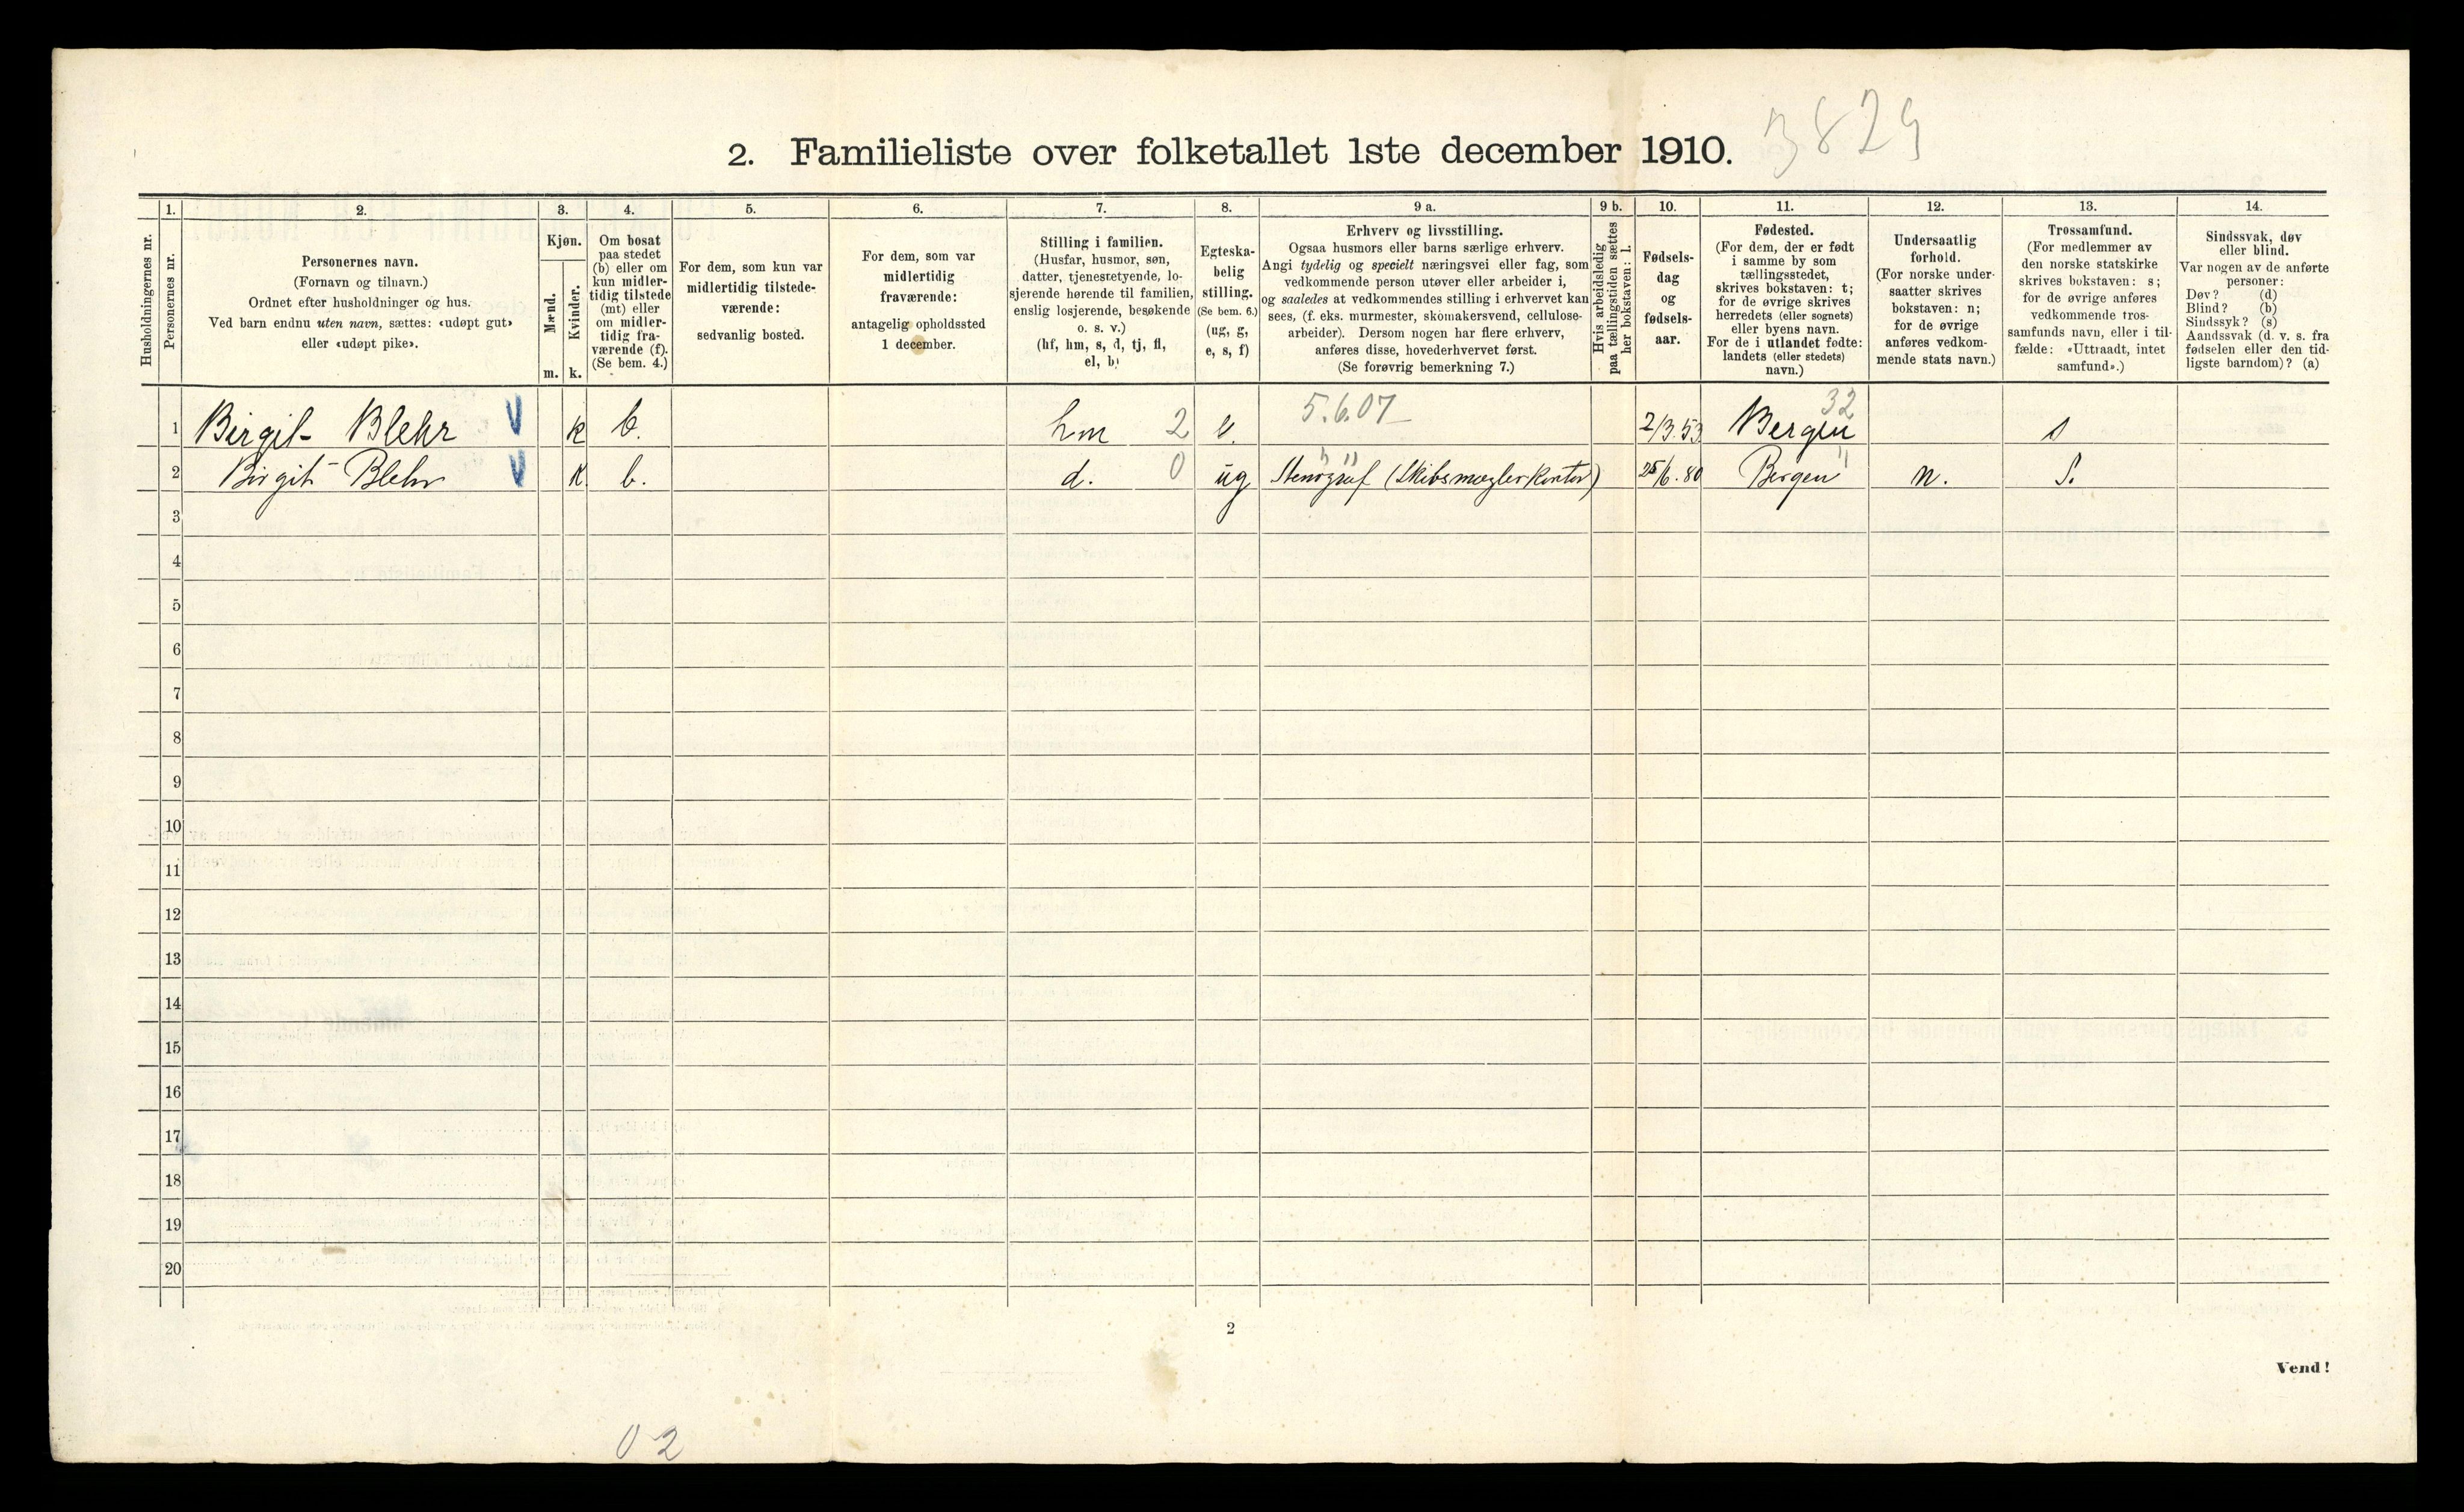 3829
2. Familieliste over folketallet 1ste december 1910.
1. 2. 3. 4. 5. 6. 7. 8. 9 a. 9 b. 10. 11. 12. 13. 14.
Husholdningernes nr.
Personernes nr.
Personernes navn.
(Fornavn og tilnavn.)
Ordnet efter husholdninger og hus.
Ved barn endnu uten navn, sættes: «udøpt gut»
eller «udøpt pike».
Kjøn.
Mænd.
Kvinder.
m. k.
Om bosat
paa stedet
(b) eller om
kun midler-
tidig tilstede
(mt) eller
om midler-
tidig fra-
værende (f).
(Se bem. 4.)
For dem, som kun var
midlertidig tilstede-
værende:
sedvanlig bosted.
For dem, som var
midlertidig
fraværende:
antagelig opholdssted
1 december.
Stilling i familien.
(Husfar, husmor, søn,
datter, tjenestetyende, lo-
sjerende hørende til familien,
enslig losjerende, besøkende
o. s. v.)
(hf, hm, s, d, tj, fl,
el, b)
Egteska-
belig
stilling.
(Se bem. 6.)
(ug, g,
e, s, f)
Erhverv og livsstilling.
Ogsaa husmors eller barns særlige erhverv.
Angi tydelig og specielt næringsvei eller fag, som
vedkommende person utøver eller arbeider i,
og saaledes at vedkommendes stilling i erhvervet kan
sees, (f. eks. murmester, skomakersvend, cellulose-
arbeider). Dersom nogen har flere erhverv,
anføres disse, hovederhvervet først.
(Se forøvrig bemerkning 7.)
Hvis arbeidsledig
paa tællingstiden sættes
her bokstaven: l.
Fødsels-
dag
og
fødsels-
aar.
Fødested.
(For dem, der er født
i samme by som
tællingsstedet,
skrives bokstaven: t;
for de øvrige skrives
herredets (eller sognets)
eller byens navn.
For de i utlandet fødte:
landets (eller stedets)
navn.)
Undersaatlig
forhold.
(For norske under-
saatter skrives
bokstaven: n;
for de øvrige
anføres vedkom-
mende stats navn.)
Trossamfund.
(For medlemmer av
den norske statskirke
skrives bokstaven: s;
for de øvrige anføres
vedkommende tros-
samfunds navn, eller i til-
fælde: «Uttraadt, intet
samfund».)
Sindssvak, døv
eller blind.
Var nogen av de anførte
personer:
Døv? (d)
Blind? (b)
Sindssyk? (s)
Aandssvak (d. v. s. fra
fødselen eller den tid-
ligste barndom)? (a)
1 Birgit Blehr V k b. hm 2 e. 5.6.07 2/3.53 Bergen 32 s
2 Birgit Blehr V k. b. d. 0 ug Stenograf (Skibsmæglerkontor) 25/6.80 Bergen " n. S.
3
4
5
6
7
8
9
10
11
12
13
14
15
16
17
18
19
20
2
Vend!
02